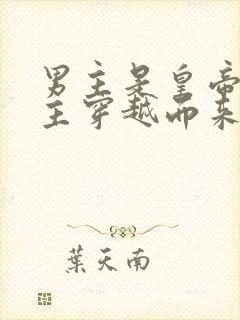 男主是皇帝
主穿越而来
葉天南